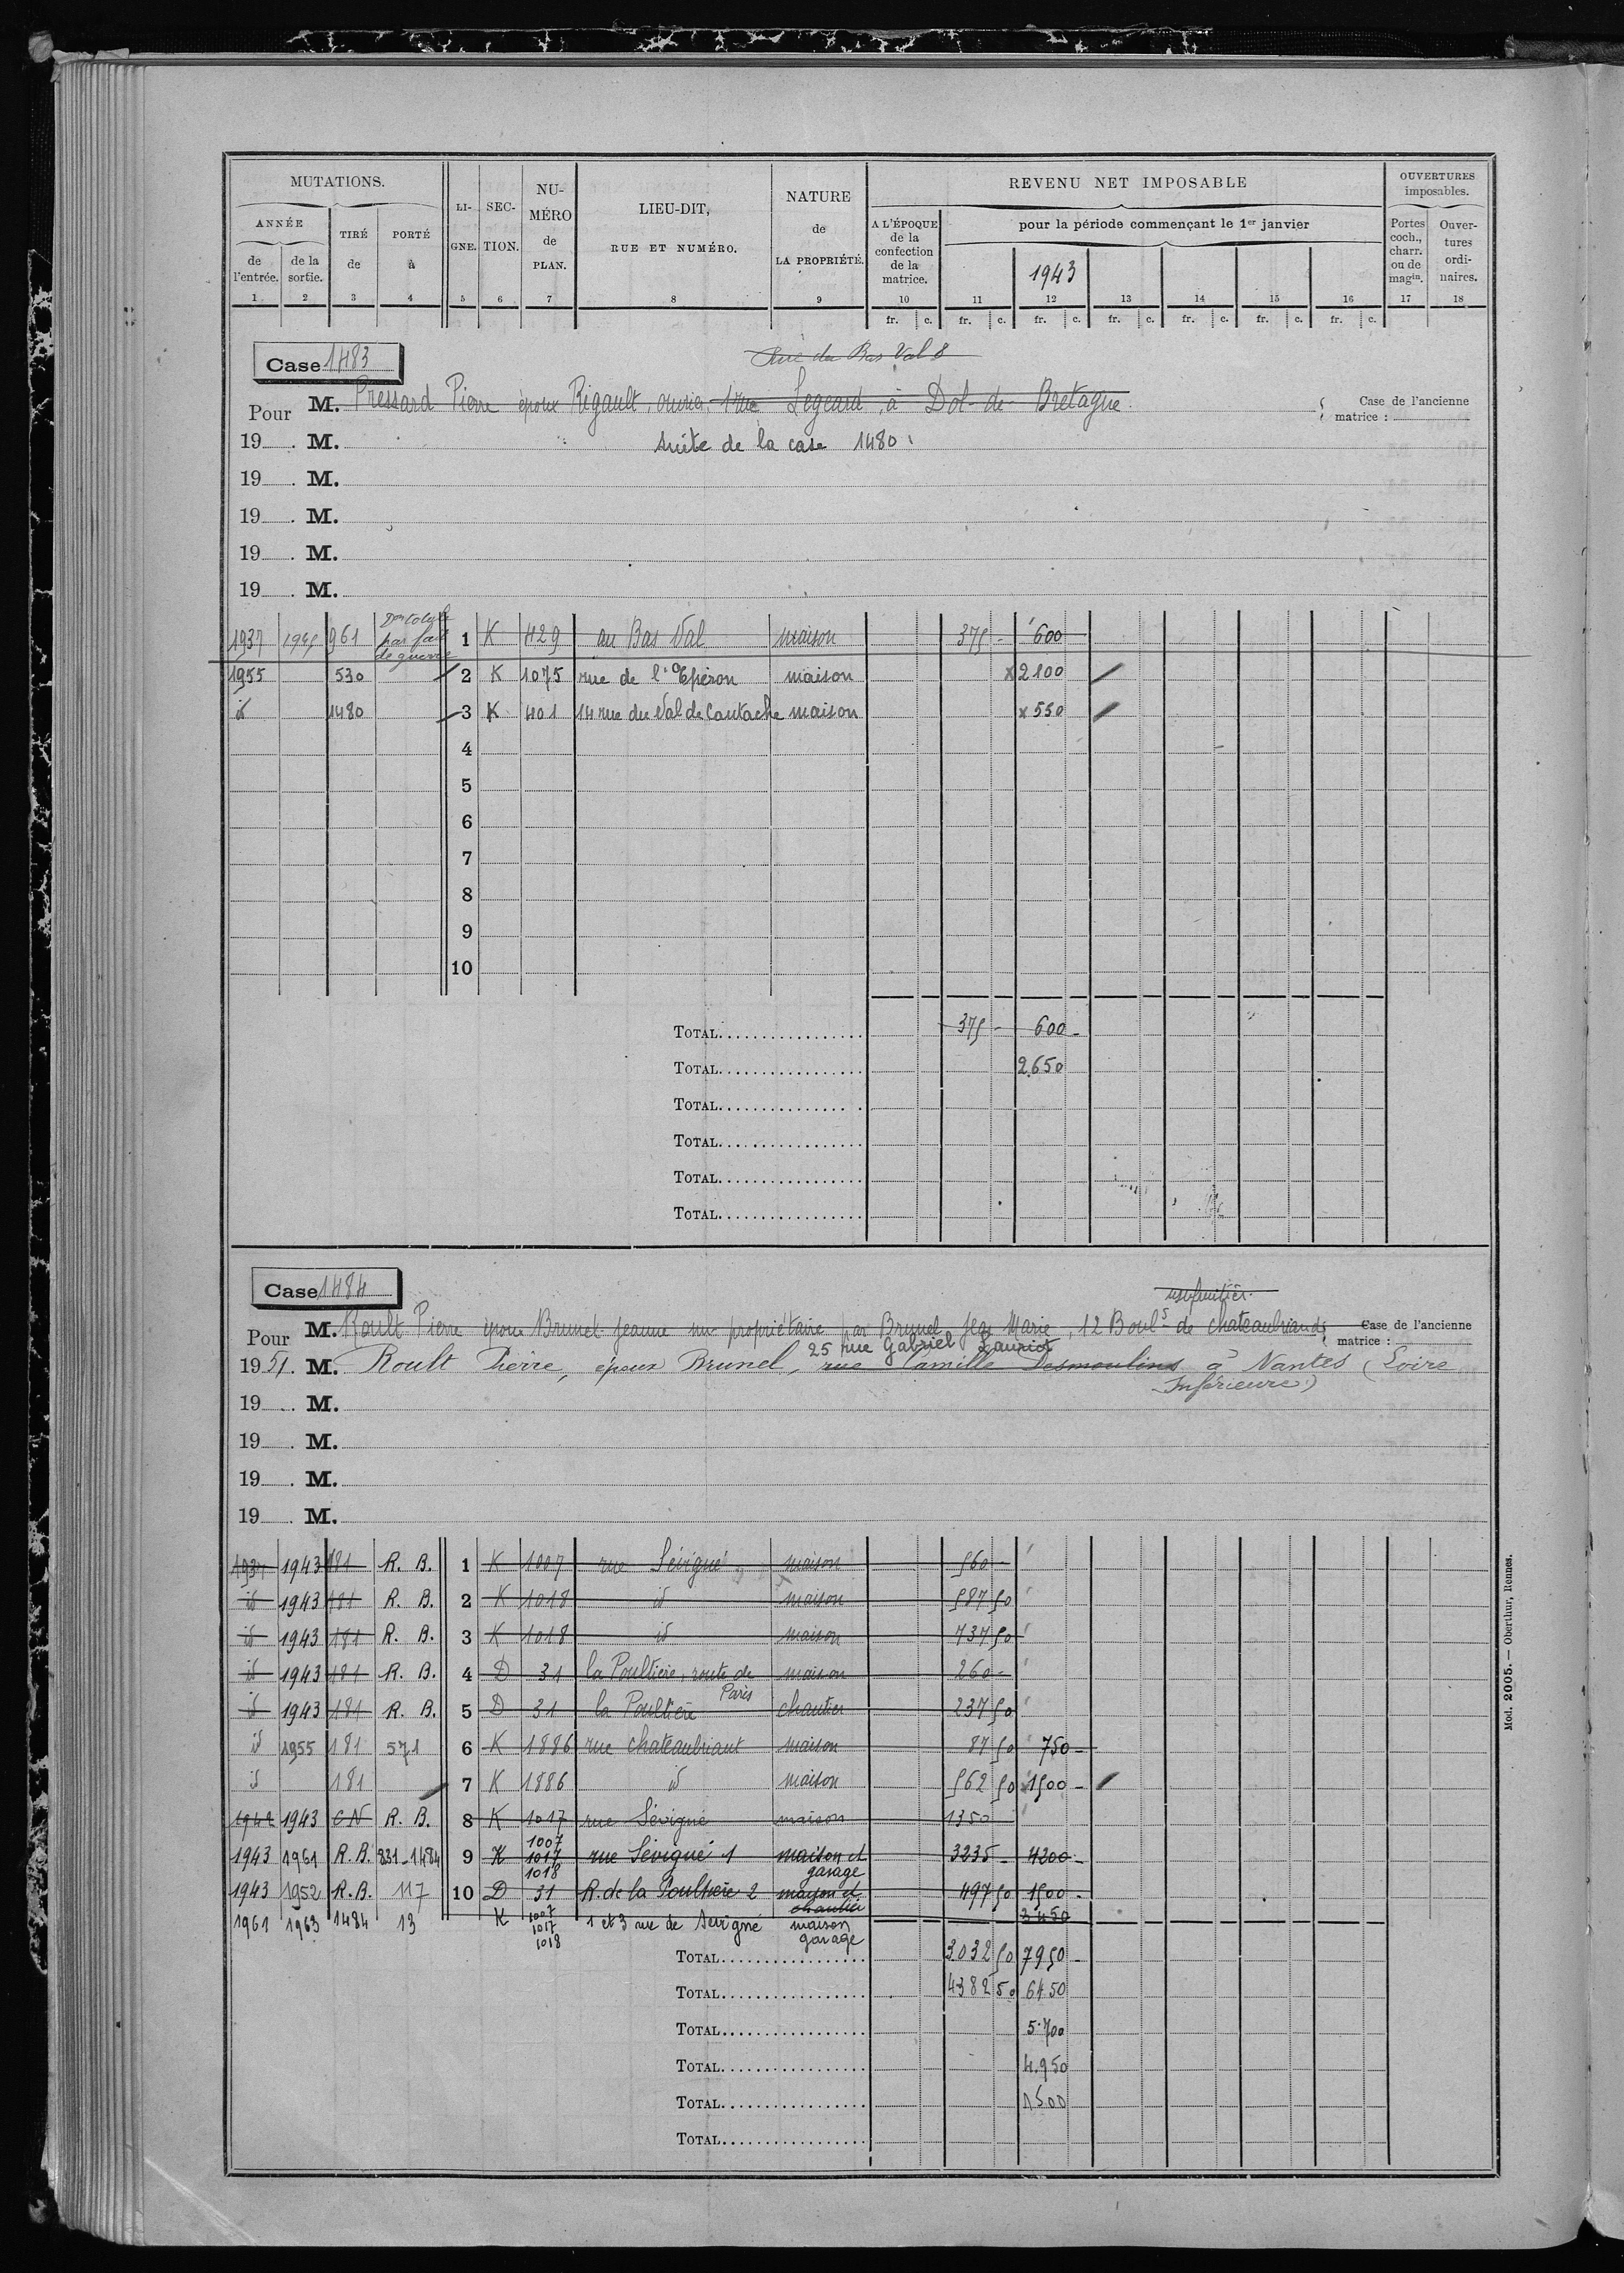 MUTATIONS.
ANNÉE
de l'entrée.
de la sortie.
TIRÉ de
PORTÉ à
LI-GNE.
SEC-TION.
NU-MÉRO de PLAN.
LIEU-DIT, RUE ET NUMÉRO.
NATURE de LA PROPRIÉTÉ.
REVENU NET IMPOSABLE
A L'ÉPOQUE de la confection de la matrice.
pour la période commençant le 1er janvier
1943
OUVERTURES imposables.
Portes coch., charr. ou de magin.
Ouver-tures ordi-naires.
1 2 3 4 5 6 7 8 9 10 11 12 13 14 15 16 17 18
fr. c. fr. c. fr. c. fr. c. fr. c. fr. c. fr. c.
Case 1483
Rue du Bas Val 8
Pour M. Pressard Pierre époux Rigault, ouvrier, 1 rue Legeard, à Dol-de-Bretagne.
Case de l'ancienne matrice :
19 . M. suite de la case 1480
19 . M.
19 . M.
19 . M.
19 . M.
1937 1945 961 Don totale par fait de guerre 1 K 429 au Bas Val maison 375 - 600
1955 530 2 K 1075 rue de l'Eperon maison x2100
id 1480 3 K 401 14 rue du Val de Cantache maison x550
4
5
6
7
8
9
10
TOTAL 375 - 600 -
TOTAL 2.650
TOTAL
TOTAL
TOTAL
TOTAL
Case 1484
usufruitier.
Pour M. Roult Pierre époux Brunel Jeanne nu-propriétaire par Brunel Jean Marie, 12 Bould de Chateaubriand;
Case de l'ancienne matrice :
25 rue Gabriel Lauriot
1951. M. Roult Pierre, époux Brunel, rue Camille Desmoulins à Nantes (Loire
Inférieure)
19 . M.
19 . M.
19 . M.
19 . M.
1937 1943 181 R. B. 1 K 1007 rue Sévigné maison 560 -
id 1943 181 R. B. 2 K 1018 id maison 587 50
id 1943 181 R. B. 3 K 1018 id maison 737 50
id 1943 181 R. B. 4 D 31 la Poultière, route de Paris maison 260 -
id 1943 181 R. B. 5 D 31 la Poultière chantier 237 50
id 1955 181 571 6 K 1886 rue chateaubriant maison 87 50 750 -
id 181 7 K 1886 id maison 562 50 1500 -
1942 1943 CN R. B. 8 K 1017 rue Sévigné maison 1350
1943 1961 R.B. 831-1484 9 K 1007 1017 1018 rue Sévigné 1 maison et garage 3235 - 4200 -
1943 1952 R.B. 117 10 D 31 R. de la Poultière 2 maison et chantier 497 50 1500 -
1961 1963 1484 13 K 1007 1017 1018 1 et 3 rue de Sévigné maison garage 3450
TOTAL 3032 50 7950 -
TOTAL 4382 50 6450
TOTAL 5.700
TOTAL 4.950
TOTAL 1500
TOTAL
Mod. 2005. — Oberthur, Rennes.